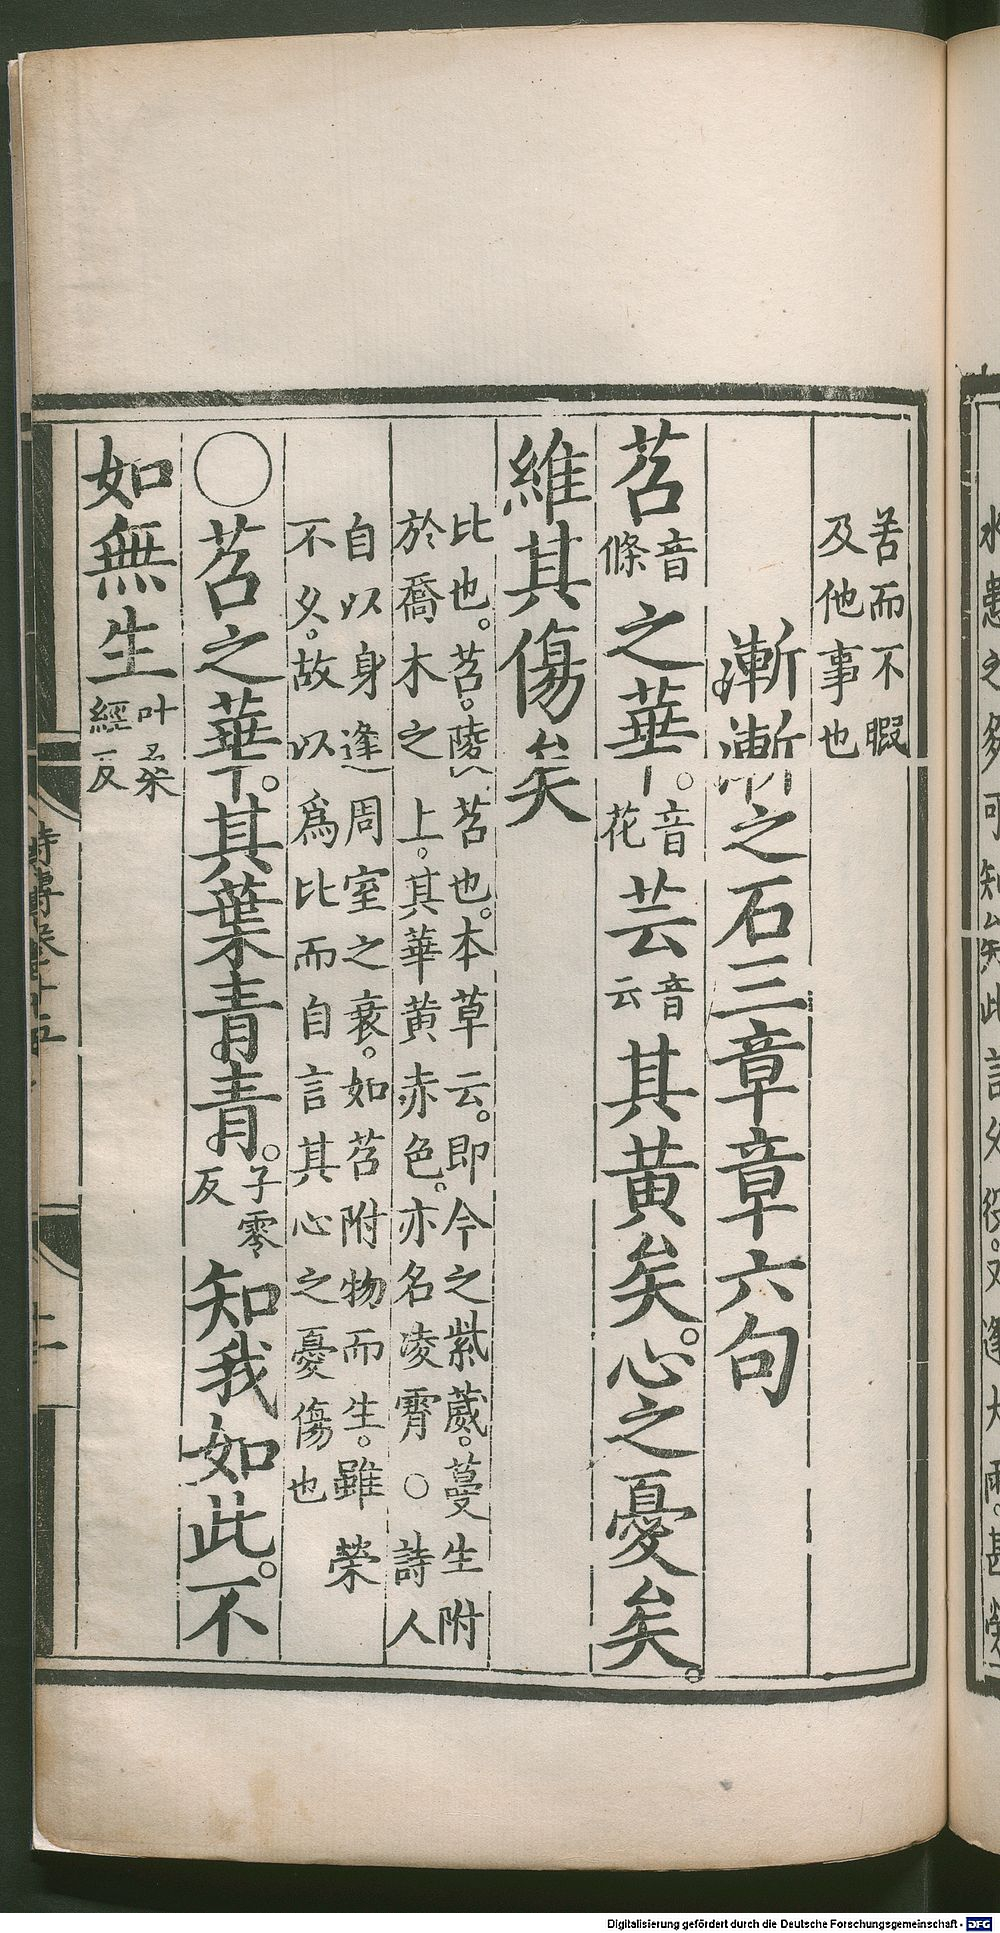 苦而不暇
及他事也
漸漸之石三章章六句
苕音條之華。音花芸音云其黃矣。心之憂矣。
維其傷矣
比也。苕。陵苕也。本草云。即今之紫葳。蔓生附
於喬木之上。其華黃赤色。亦名凌霄○詩人
自以身逢周室之衰。如苕附物而生。雖榮
不久。故以爲比而自言其心之憂傷也
○苕之華。其葉青青。子零反知我如此。不
如無生叶桑經反
詩傳卷十五
Digitalisierung gefördert durch die Deutsche Forschungsgemeinschaft - DFG